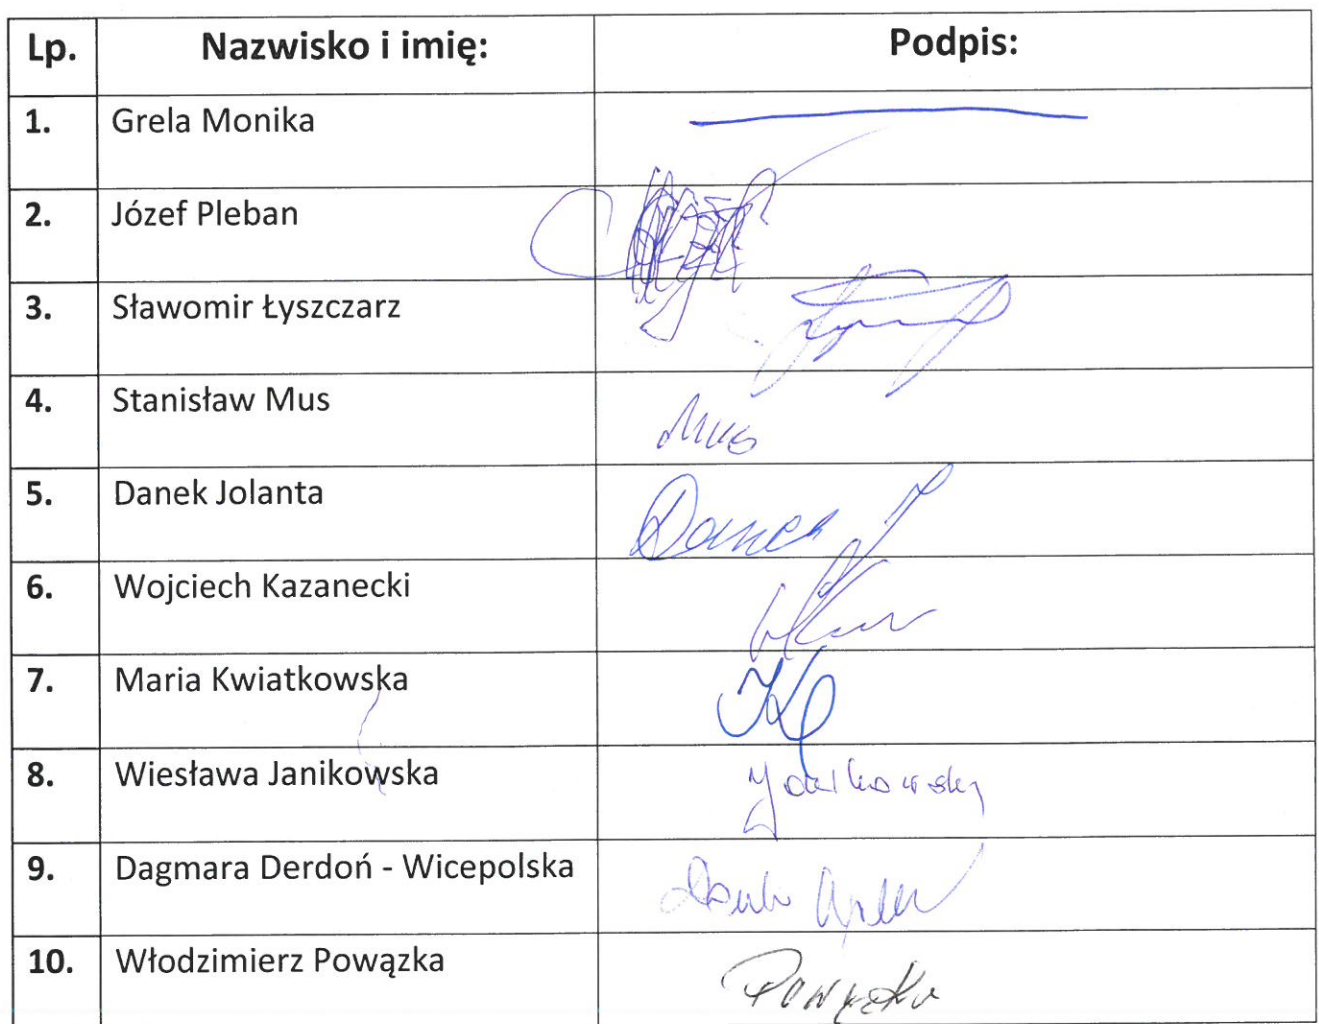 Lp. Nazwisko i imię: Podpis:
1. Grela Monika
2. Józef Pleban
3. Sławomir Łyszczarz
4. Stanisław Mus Mus
5. Danek Jolanta Danek
6. Wojciech Kazanecki
7. Maria Kwiatkowska
8. Wiesława Janikowska Janikowska
9. Dagmara Derdoń - Wicepolska
10. Włodzimierz Powązka Powązka